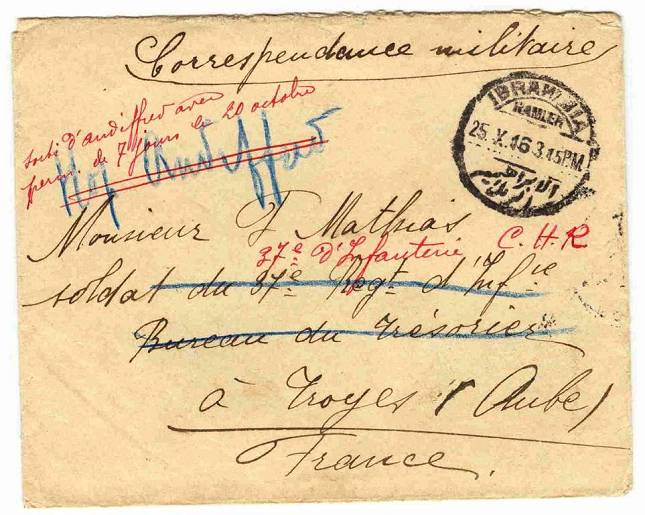 Correspondance militaire
sorti d'Audiffred avec
perm. de 7 jours le 20 octobre
Hop Audiffred
IBRAHIMIA
RAMLEH
25.X.16 3.15PM.
الابراهيمية
Monsieur F Mathias
37e d'Infanterie C.H.R
soldat du 37e Regt d'Infie
Bureau du Trésorier
à Troyes (Aube)
France